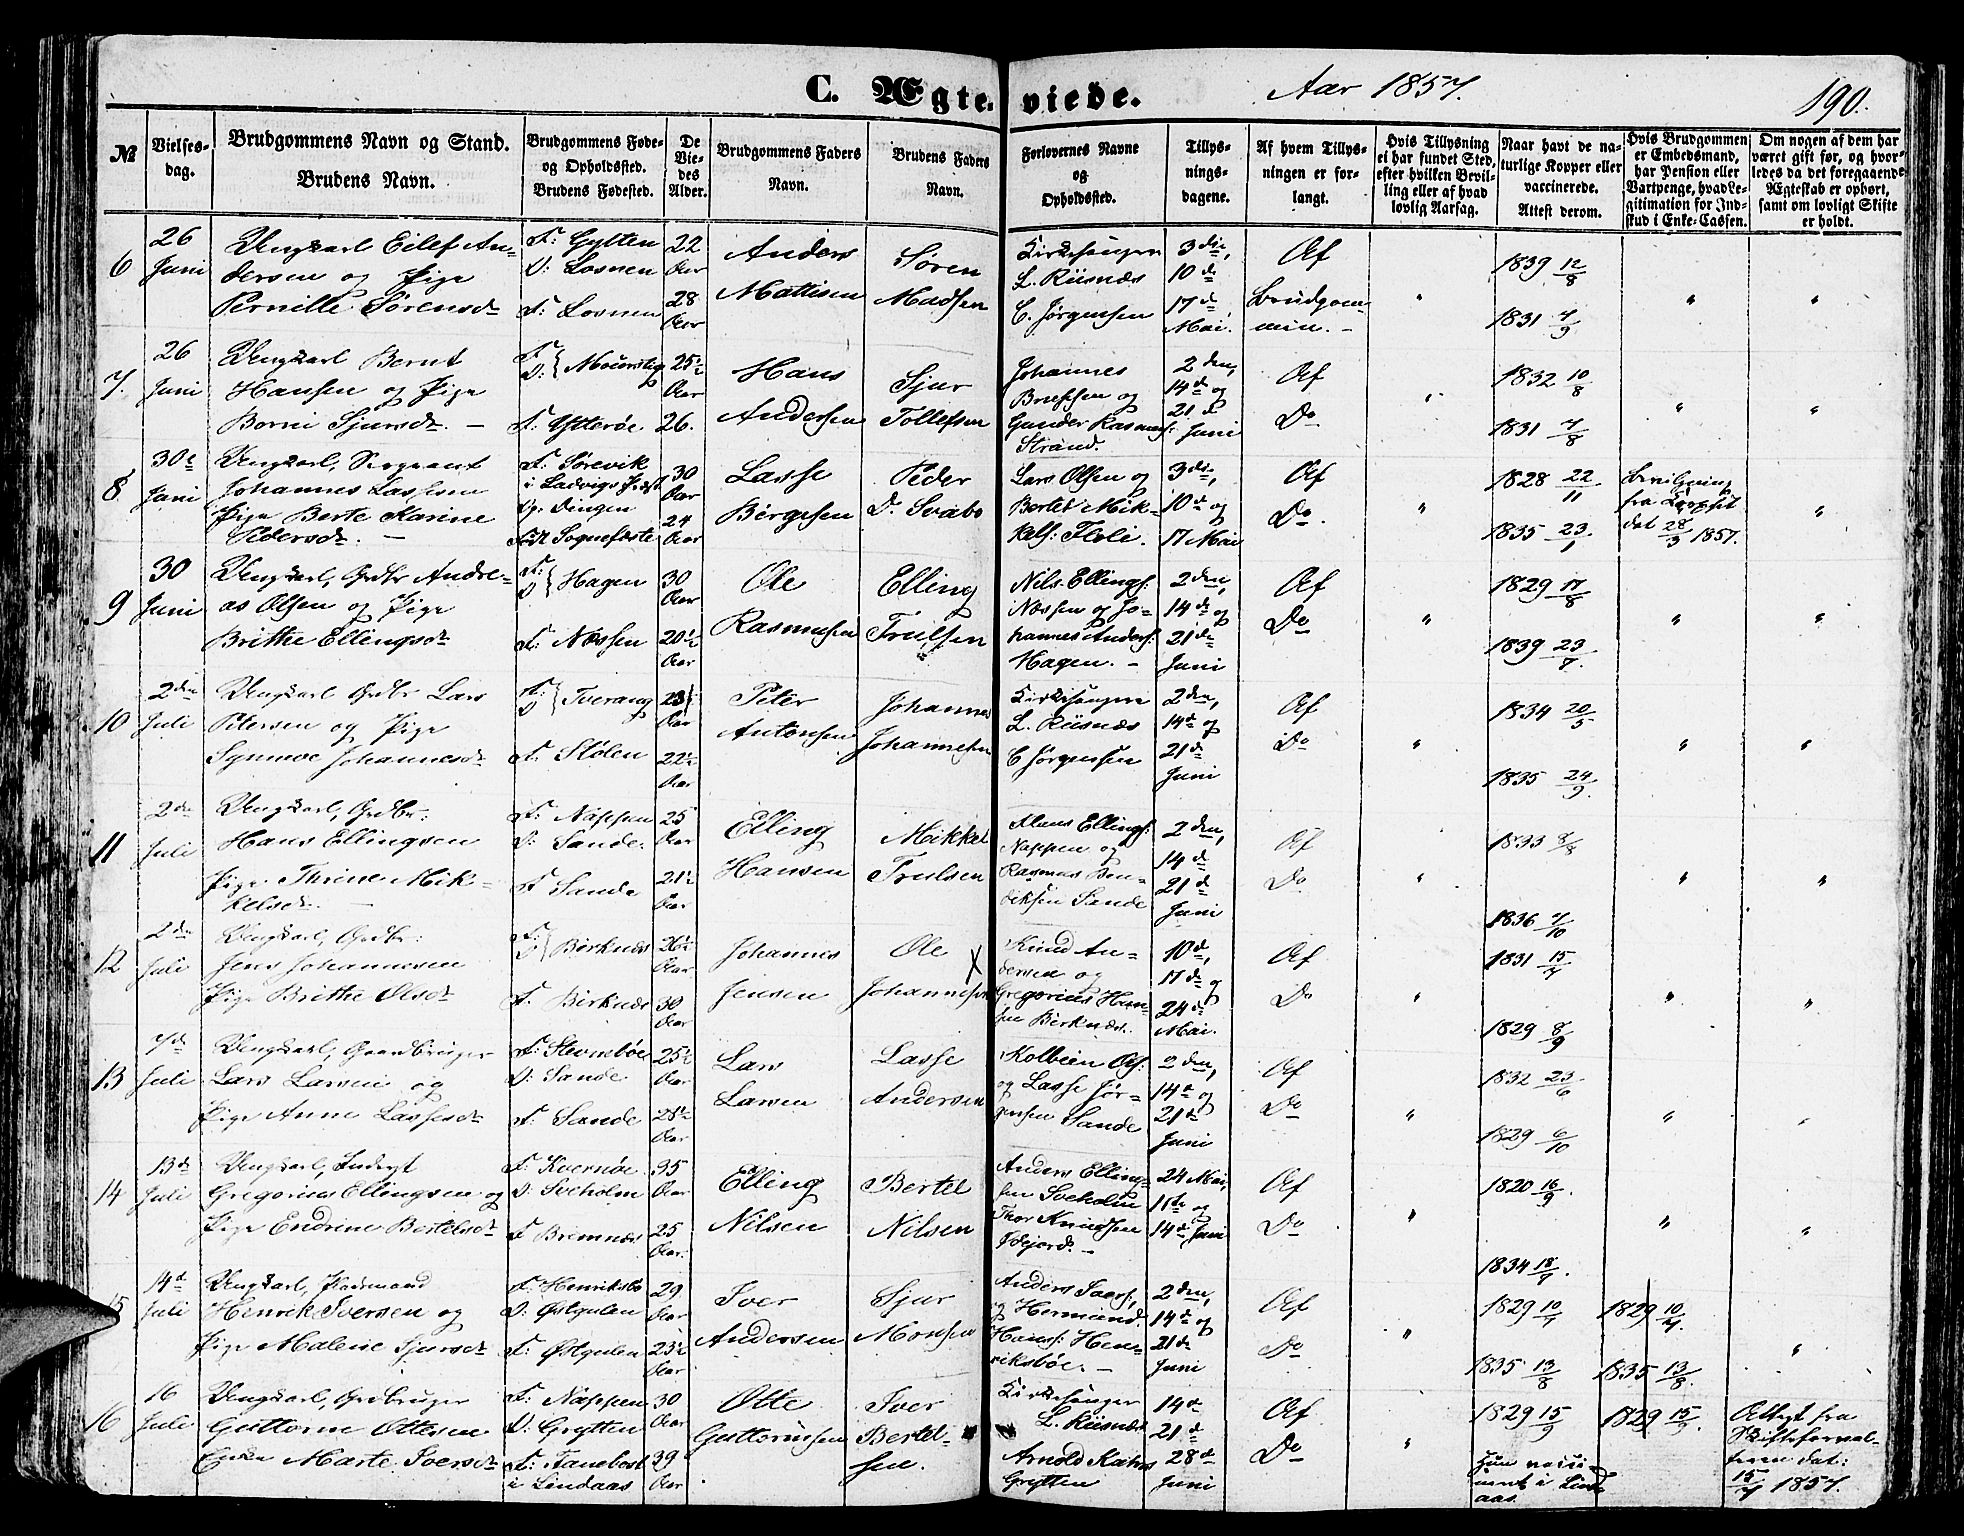 C. Ægteviede. Aar 1857. 190.
№
Vielses-
dag.
Brudgommens Navn og Stand.
Brudens Navn.
Brudgommens Føde-
og Opholdssted.
Brudens Fødested.
De
Vie-
des
Alder.
Brudgommens Faders
Navn.
Brudens Faders
Navn.
Forlovernes Navne
og
Opholdssted.
Tillys-
nings-
dagene.
Af hvem Tillys-
ningen er for-
langt.
Hvis Tillysning
ei har fundet Sted,
efter hvilken Bevil-
ling eller af hvad
lovlig Aarsag.
Naar havt de na-
turlige Kopper eller
vaccinerede.
Attest derom.
Hvis Brudgommen
er Embedsmand,
har Pension eller
Vartpenge, hvad Le-
gitimation for Ind-
skud i Enke-Cassen.
Om nogen af dem har
været gift før, og hvor-
ledes da det foregaaende
Ægteskab er ophørt,
samt om lovligt Skifte
er holdt.
6
26
Juni
Ungkarl Eilef An-
dersen og Pige
Pernille Sørensdr
F: Gytten
O: Losnen
F: Losnen
22
Aar
28
Aar
Anders
Mattisen
Søren
Madsen
Kirkesanger
L. Riisnæs
C. Jørgensen
3die,
10de
17de
Mai.
Af
Brudgom-
men. –
"
1839 12/8
1831 7/9
"
"
7.
26
Juni
Ungkarl Bernt
Hansen og Pige
Borni Sjursdr. –
F:
O: } Mjømstig
F: Ytterøe
25½
Aar
26.
Hans
Andersen
Sjur
Tollefsen
Johannes
og
Gunder Rasmus:
Strand.
2den,
14de og
21de
Juni
Af
Do
"
1832 10/8
1831 7/8
"
"
8
30te
Juni
Ungkarl, Sergeant
Johannes Lassesen
Pige Berte Karine
Pedersdr. –
F: Sørevik
i Ladvigs Præst
Dingen
Sognefæste
30
Aar
24
Aar
Lasse
Børgesen
Peder
D. Svabo
Lars Olsen og
Bertel Mik-
kels: Floli.
3die,
10de og
17 Mai
Af
Do.
"
1828 22/11
1835 23/1
Bevilgning
fra
dat 28/3 1857.
"
9
30
Juni
Ungkarl, Grdbr Andre-
as Olsen og Pige
Brithe Ellingsdr
F:
O } Hagen
F: Næssen
30
Aar
20½
Aar
Ole
Rasmusen
Elling
Trulsen
Nils Ellings:
Næssen og Jo-
hannes Anders:
Hagen. –
2den,
14de og
21de
Juni
Af
Do
"
1829 17/8
1839 23/7.
"
"
10
2den
Juli
Ungkarl Grdbr Lars
Petersen og Pige
Synnove Johannesdr
F:
O } Tverang
F: Stølen
23½
Aar
22½
Aar
Peter
Antonsen
Johannes
Johannesen
Kirkesanger
L. Riisnæs
C Jørgensen
2den,
14de og
21de
Juni
Af
Do
"
1834 20/5
1835 24/9.
"
"
11
2den
Juli
Ungkarl, Grdbr:
Hans Ellingsen
Pige Thrine Mik-
kelsdr. –
F: Nappen
O: Sande.
F Sande
25
Aar
21½
Aar
Elling
Hansen
Mikkel
Trulsen
Ellings:
Nappen og
Rasmus Ben-
diksen Sande
2den,
14de
21de
Juni
Af
Do
"
1833 8/8
1836 7/10
"
"
12
2den
Juli
Ungkarl, Grdbr:
Jens Johannesen
Pige Brithe Olsdr
F:
O } Birknæs
F. Birknæs
26½
Aar
30
Aar
Johannes
Jensen
Ole X
Johannesen
Knud An-
dersen og
Gregorius Han-
sen Birknæs.
10de,
17de og
24de
Mai.
Af
Do
"
1831 15/7
1829 8/9
"
"
13
7de
Juli
Ungkarl, Gaardbruger
Lars Larsen og
Pige Anne Lassesdr
F: Stevnebøe
O: Sande.
F: Sande
25½
Aar
28½
Aar
Lars
Larsen
Lasse
Andersen
Kolbein Ols:
og Lasse Jør-
gensen Sande
2den,
14de og
21de
Juni
Af
Do
"
1832 23/6
1829 6/10
"
"
14
13de
Juli
Ungkarl, Inderst
Gregorius Ellingsen og
Pige Endrine Bertelsdr
F. Kvernøe
O: Sveholm
F Bremnæs
35
Aar
25
Aar.
Elling
Nilsen
Bertel
Nilsen
Anders Elling-
sen Sveholm
Thor Knudsen

24 Mai,
11te og
14de Juni
Af
Do
"
1820 16/9.
1834 18/7.
"
"
15
14de
Juli
Ungkarl, Pladsmand
Henrik Iversen og
Pige Malene Sjursdr
F. Henriksbø
O: Østgulen
F. Østgulen
29
Aar
23½
Aar
Iver
Andersen
Sjur
Monsen
Anders Ivers:,
og Hermund
Hans: Hen-
riksbøe. –
2den,
14de og
21de
Juni
Af
Do
"
1829 10/7
1835 13/8
1829 10/7.
1835 13/8.
"
16
16
Juli
Ungkarl, Grdbruger
Guttorm Ottesen
Enken Marte Iversdr
F: Nappen
O: Grytten
F. Tanebost
i Lindaas
30
Aar
39
Aar
Otte
Guttormsen
Iver
Bertel-
sen.
Kirkesanger
L. Riisnæs
Arnold Rasmus
Grytten
14de
21de
28de
Juni
Af
Do
"
1829 15/9
Hun vacci-
neret i Lind-
aas.
1829 15/9.
Attest fra
Skifteforval-
teren dat:
15/7 1857.